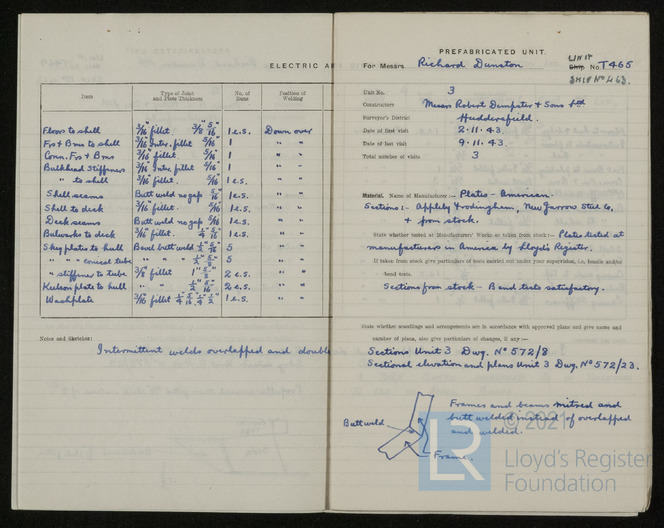 ELECTRIC A
Item
Type of Joint and Plate Thickness
No. of Runs
Position of Welding
Floors to shell 3/16" fillet 3/8" 5/16" 1 e.s. Down over
Frs + Bms to shell 3/16" Inter. fillet 5/16" 1 " "
Conn. Frs + Bms 3/16" fillet 5/16" 1 " "
Bulkhead Stiffners 3/16" Inter fillet 5/16" 1 " "
" to shell 3/16" fillet. 5/16" 1 e.s. " "
Shell seams Butt weld no gap 5/16" 1 e.s. " "
Shell to deck 3/16" fillet. 5/16" 1 e.s. " "
Deck seams Butt weld no gap 5/16" 1 e.s. " "
Bulwarks to deck 3/16" fillet. 1/4" 5/16" 1 e.s. " "
Skeg plates to hull Bevel butt weld 1/2" 5/16" 5 " "
" " " conical tube " " " 1/2" 5/8" 5 " "
" stiffener to tube 3/8" fillet 1" 5/8" 2 e.s. " "
Keelson plate to hull " " 1/2" 5/16" 2 e.s. " "
Washplate 3/16" fillet 1/4" 5/16" 1/4" 1/2" 1 e.s. " "
Notes and Sketches:
Intermittent welds overlapped and double
PREFABRICATED UNIT.
For Messrs. Richard Dunston UNIT Ship No. T465
SHIP No 463.
Unit No. 3
Constructors Messrs Robert Dempster & Sons Ltd
Surveyor's District Huddersfield.
Date of first visit 2.11.43.
Date of last visit 9.11.43.
Total number of visits 3
Material. Name of Manufacturer:— Plates – American.
Sections:– Appleby Frodingham, New Jarrow Steel Co,
+ from stock.
State whether tested at Manufacturers' Works or taken from stock:— Plates tested at
manufacturers in America by Lloyd's Register.
If taken from stock give particulars of tests carried out under your supervision, i.e., tensile and/or
bend tests.
Sections from stock – Bend tests satisfactory.
State whether scantlings and arrangements are in accordance with approved plans and give name and
number of plans, also give particulars of changes, if any:—
Sections Unit 3 Dwg. No 572/8
Sectional elevation and plans Unit 3 Dwg. No 572/23.
Frames and beams mitred and
butt welded instead of overlapped
and welded.
Butt weld
Frame.
© 2021
LR
Lloyd's Register
Foundation